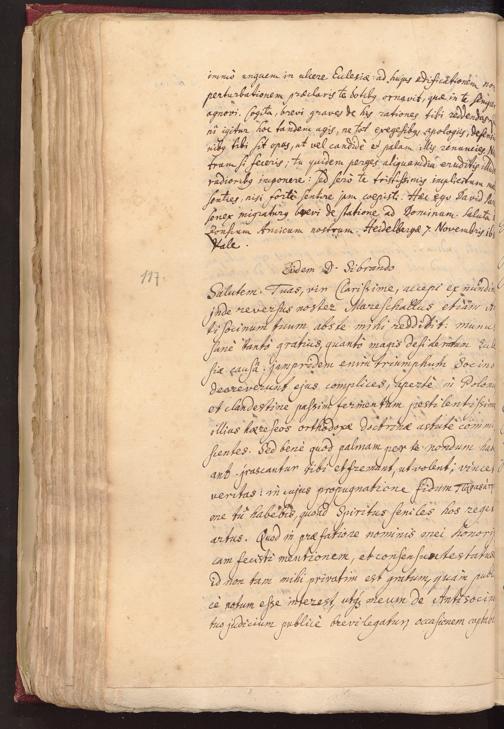 immò unquem in ulcere Ecclesiæ: ad hujus ædificationem non
perturbationem præclaris te dotib9 ornavit, quæ in te semper
agnovi. Cogita, brevi graves de his rationes tibi reddendas
ni igitur hoc tandem agis, ne tot exegesib9, apologiis, defensio
nib9 tibi sit opus, ut vel candidè et palam illis renuncies
tram si feceris; tu quidem perges aliquamdiu eruditis illis
radiorib9 imponere: sed seriò te tristissimis implicitum
sonties, nisi fortè sentire jam coepisti. Hæc ego David Pa
senex migraturus brevi de statione ad Dominum. Saluta
Amicum nostrum. Heidelbergæ 7. Novembris
Vale.
Eidem D. Sibrando
117.
Salutem. Tuas, vir Clarissime, accepi ex nundin
inde reversus noster Mareschallus etiam
tisocinum tuum abs te mihi reddidit: munu
sane tantò gratius, quantò magis desideratum Eccle
siæ causâ: jampridem enim triumphum Socino
decreverunt ejus complices, apertè in Polon
et clandestine passim fermentum pestilentissim
illius hæreseos orthodoxæ doctrinæ astutè commi
scentes. Sed benè quod palmam per te nondum hab
ant. Irascantur tibi et fremant, ut volent; vincet
veritas: in cujus propugnatione fidum
me tu habebis, quoad Spiritus seniles hos reget
artus. Quod in præfatione nominis mei honori
cam fecisti mentionem, et consensum testatus
id non tam mihi privatim est gratum, quàm publi
cè notum esse interest, utq3 meum de Antisocin
tuo judicium publicè brevi legatur, occasionem captabo